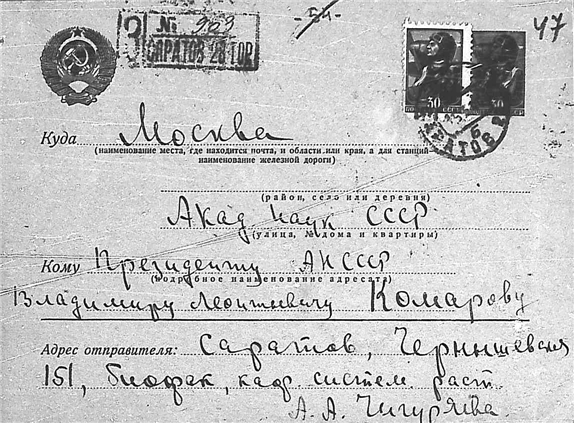 № 903
САРАТОВ 28 ГОР.
47
30
30
САРАТОВ
Куда Москва
(наименование места, где находится почта, и области или края, а для станций—
наименование железной дороги)
(район, село или деревня)
Акад наук СССР
(улица, № дома и квартиры)
Кому Президенту АН СССР
(подробное наименование адресата)
Владимиру Леонтьевичу Комарову
Адрес отправителя: Саратов, Чернышевская
151, биофак, каф систем раст.
А. А. Чигуряева